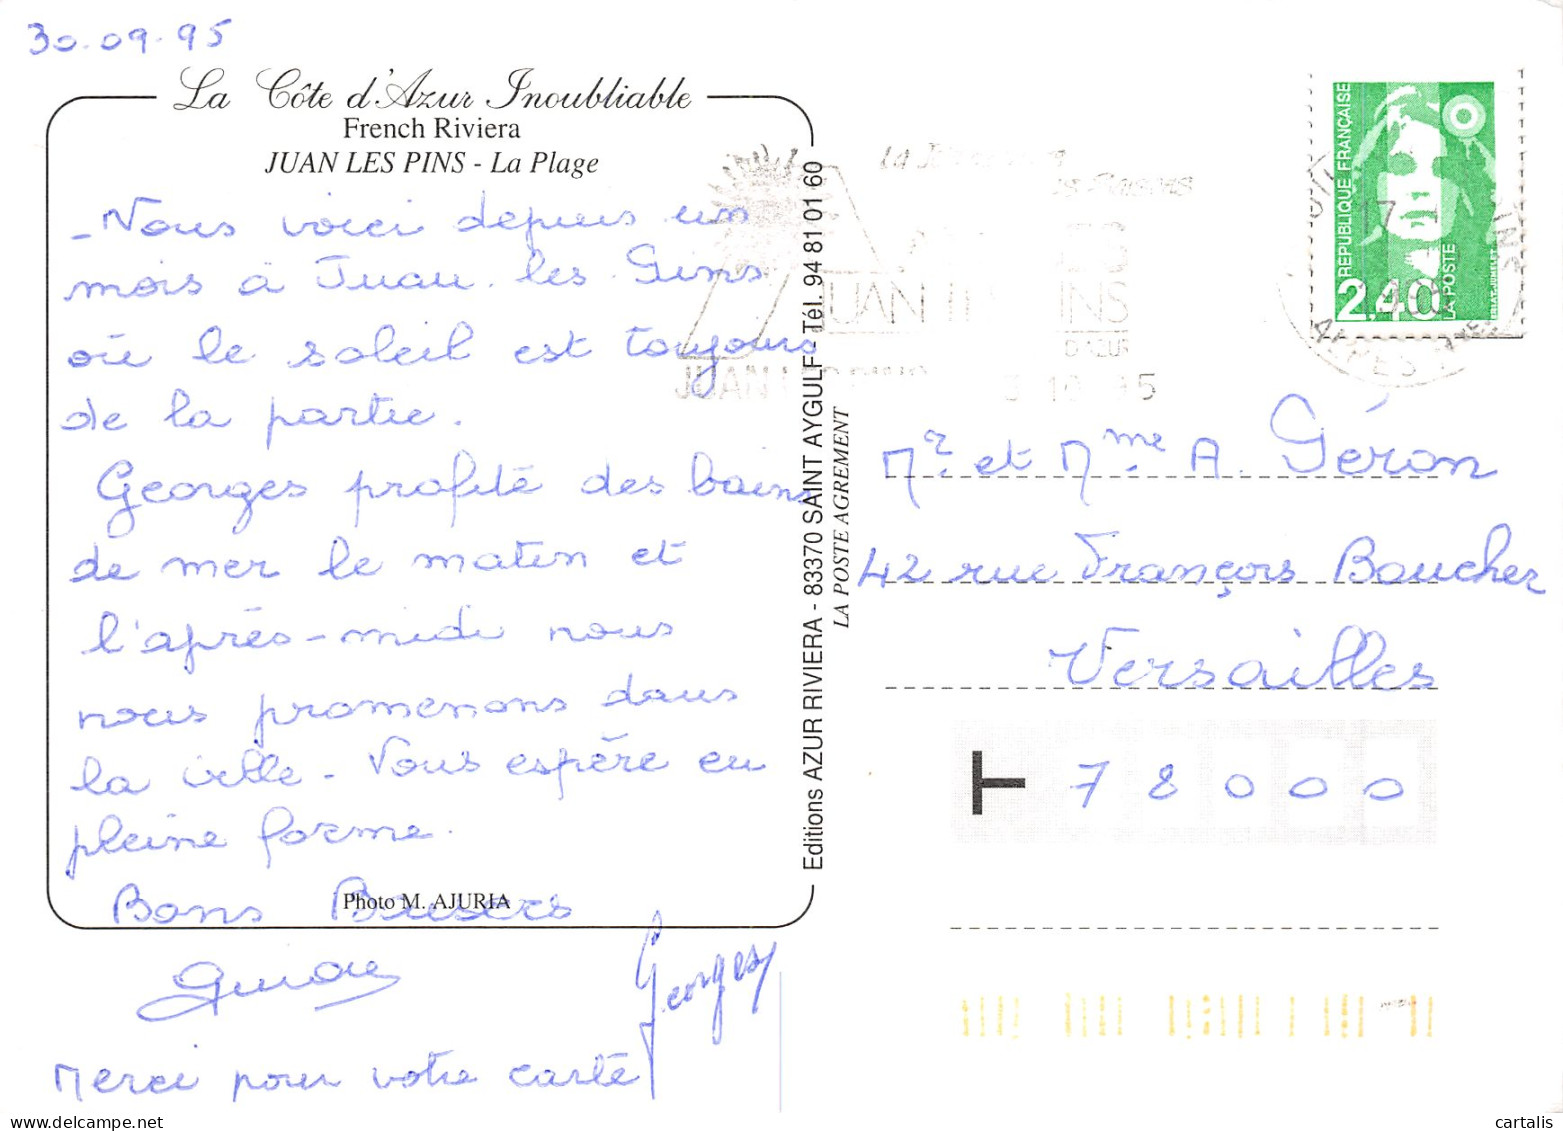 30.09.95
La Côte d'Azur Inoubliable
French Riviera
JUAN LES PINS - La Plage
- Nous voici depuis un
mois à Juan les Pins
où le soleil est toujours
de la partie.
Georges profité des bains
de mer le matin et
l'après-midi nous
nous promenons dans
la ville - Vous espère en
pleine forme.
Photo M. AJURIA
Bons Baisers
Georges
Merci pour votre carte
Editions AZUR RIVIERA - 83370 SAINT AYGULF - Tél. 94 81 01 60
LA POSTE AGREMENT
JUAN
PINS
D'AZUR
REPUBLIQUE FRANÇAISE
2,40
LA POSTE
Mr. et Mme A. Géron
42 rue François Boucher
Versailles
78000
cartalis